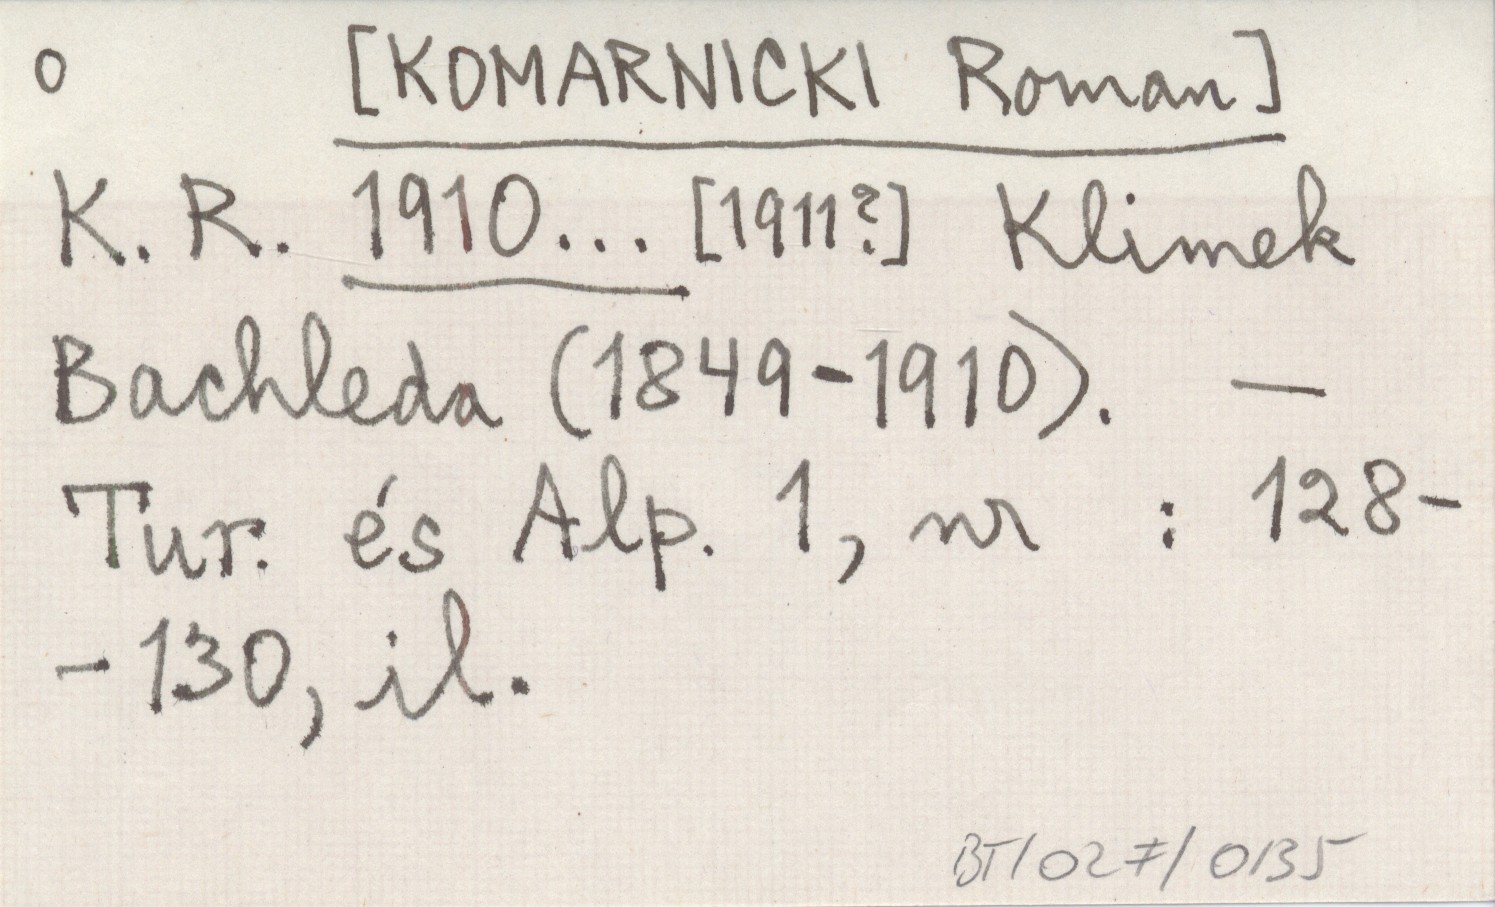 o [KOMARNICKI Roman]
K. R. 1910... [1911?] Klimek
Bachleda (1849-1910). —
Tur. és Alp. 1, nr : 128-
-130, il.
BT/027/0135